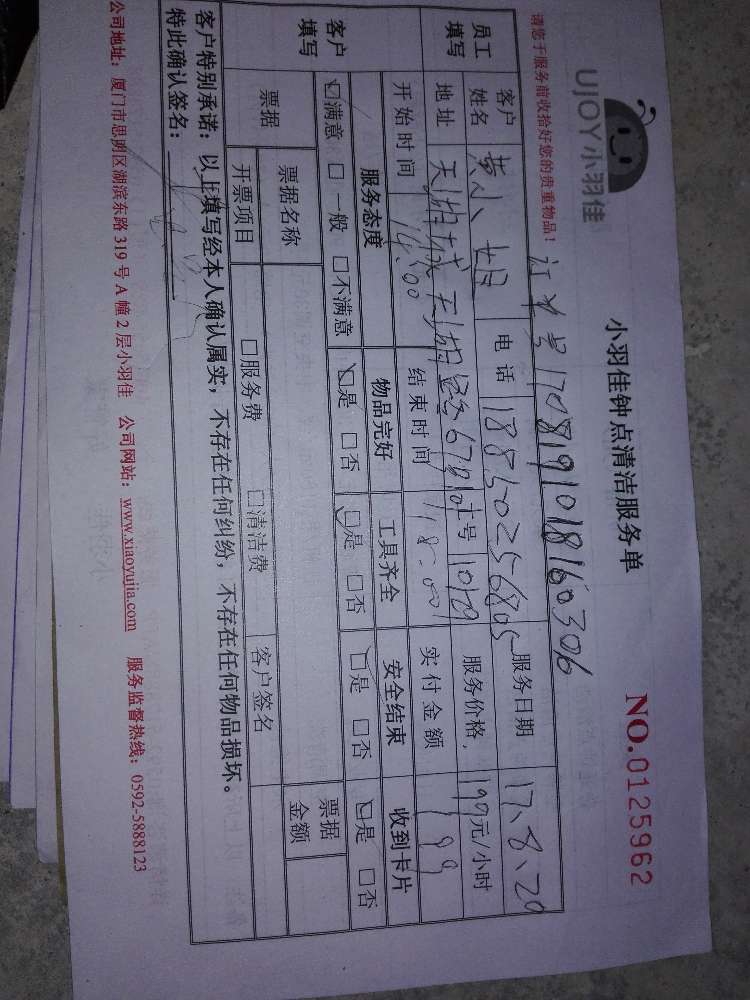 UJOY小羽佳
小羽佳钟点清洁服务单
NO.0125962
请您于服务前收拾好您的贵重物品！
订单号170819101816030​6
员工填写
客户姓名 黄小姐 电话 18850256805 服务日期 17.8.20
地址 天湖城天湖 678 10 10129 服务价格 199元/小时
开始时间 14:00 结束时间 18:00 实付金额 199
客户填写
服务态度 物品完好 工具齐全 安全结束 收到卡片
☑满意 □一般 □不满意 ☑是 □否 ☑是 □否 ☑是 □否 ☑是 □否
票据 票据名称 票据金额
开票项目 □服务费 □清洁费 客户签名
客户特别承诺：以上填写经本人确认属实，不存在任何纠纷，不存在任何物品损坏。
特此确认签名：
公司地址：厦门市思明区湖滨东路 319 号 A 幢 2 层小羽佳 公司网站：www.xiaoyujia.com 服务监督热线：0592-5888123